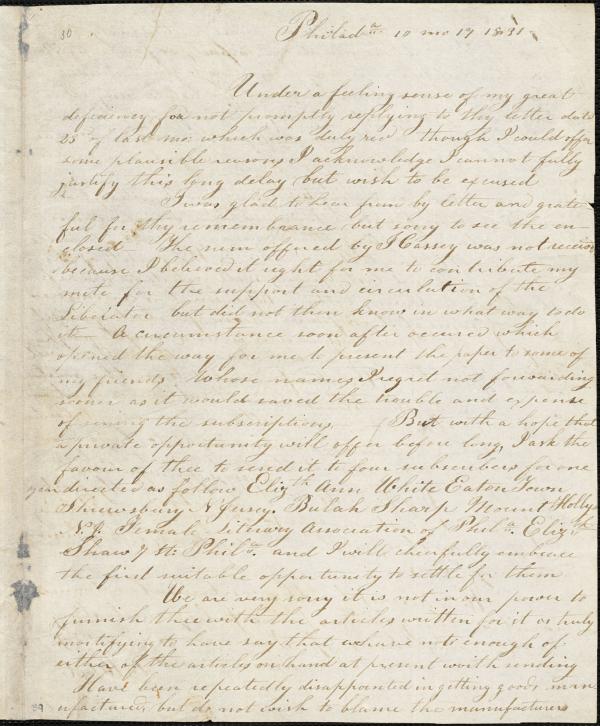 30
Philada 10 mo 17 1831
Under a feeling sense of my great
deficiency for not promptly replying to thy letter date
25th of last mo: which was duly recd though I could offer
some plausible reasons I acknowledge I cannot fully
justify this long delay but wish to be excused
I was glad to hear from by letter and grate
ful for thy remembrance but sorry to see the en-
closed The sum offered by J Cassey was not received
because I believed it right for me to contribute my
mete for the support and circulation of the
Liberator but did not then know in what way to do
it A circumstance soon after occured which
opened the way for me to present the paper to some of
my friends Whose names I regret not forwarding
sooner as it would saved the trouble and expense
of the subscriptions But with a hope that
a private opportunity will offer before long, I ask the
favour of thee to send it to four subscribers for one
year directed as follow Elizth Ann White Eaton Town
Shrewsbury N Jersey. Bulah Sharp Mount Holly
N.J. Female Litterary Association of Phila. Elizth
Shaw 7 St: Phila. and I will cheerfully embrace
the first suitable opportunity to settle for them
We are very sorry it is not in our power to
furnish thee with the articles written for it is truly
mortifying to have say that we have not enough of
either of the articles on hand at present worth sending
Have been repeatedly disappointed in getting goods man
ufactured, but do not wish to blame the manufacturers